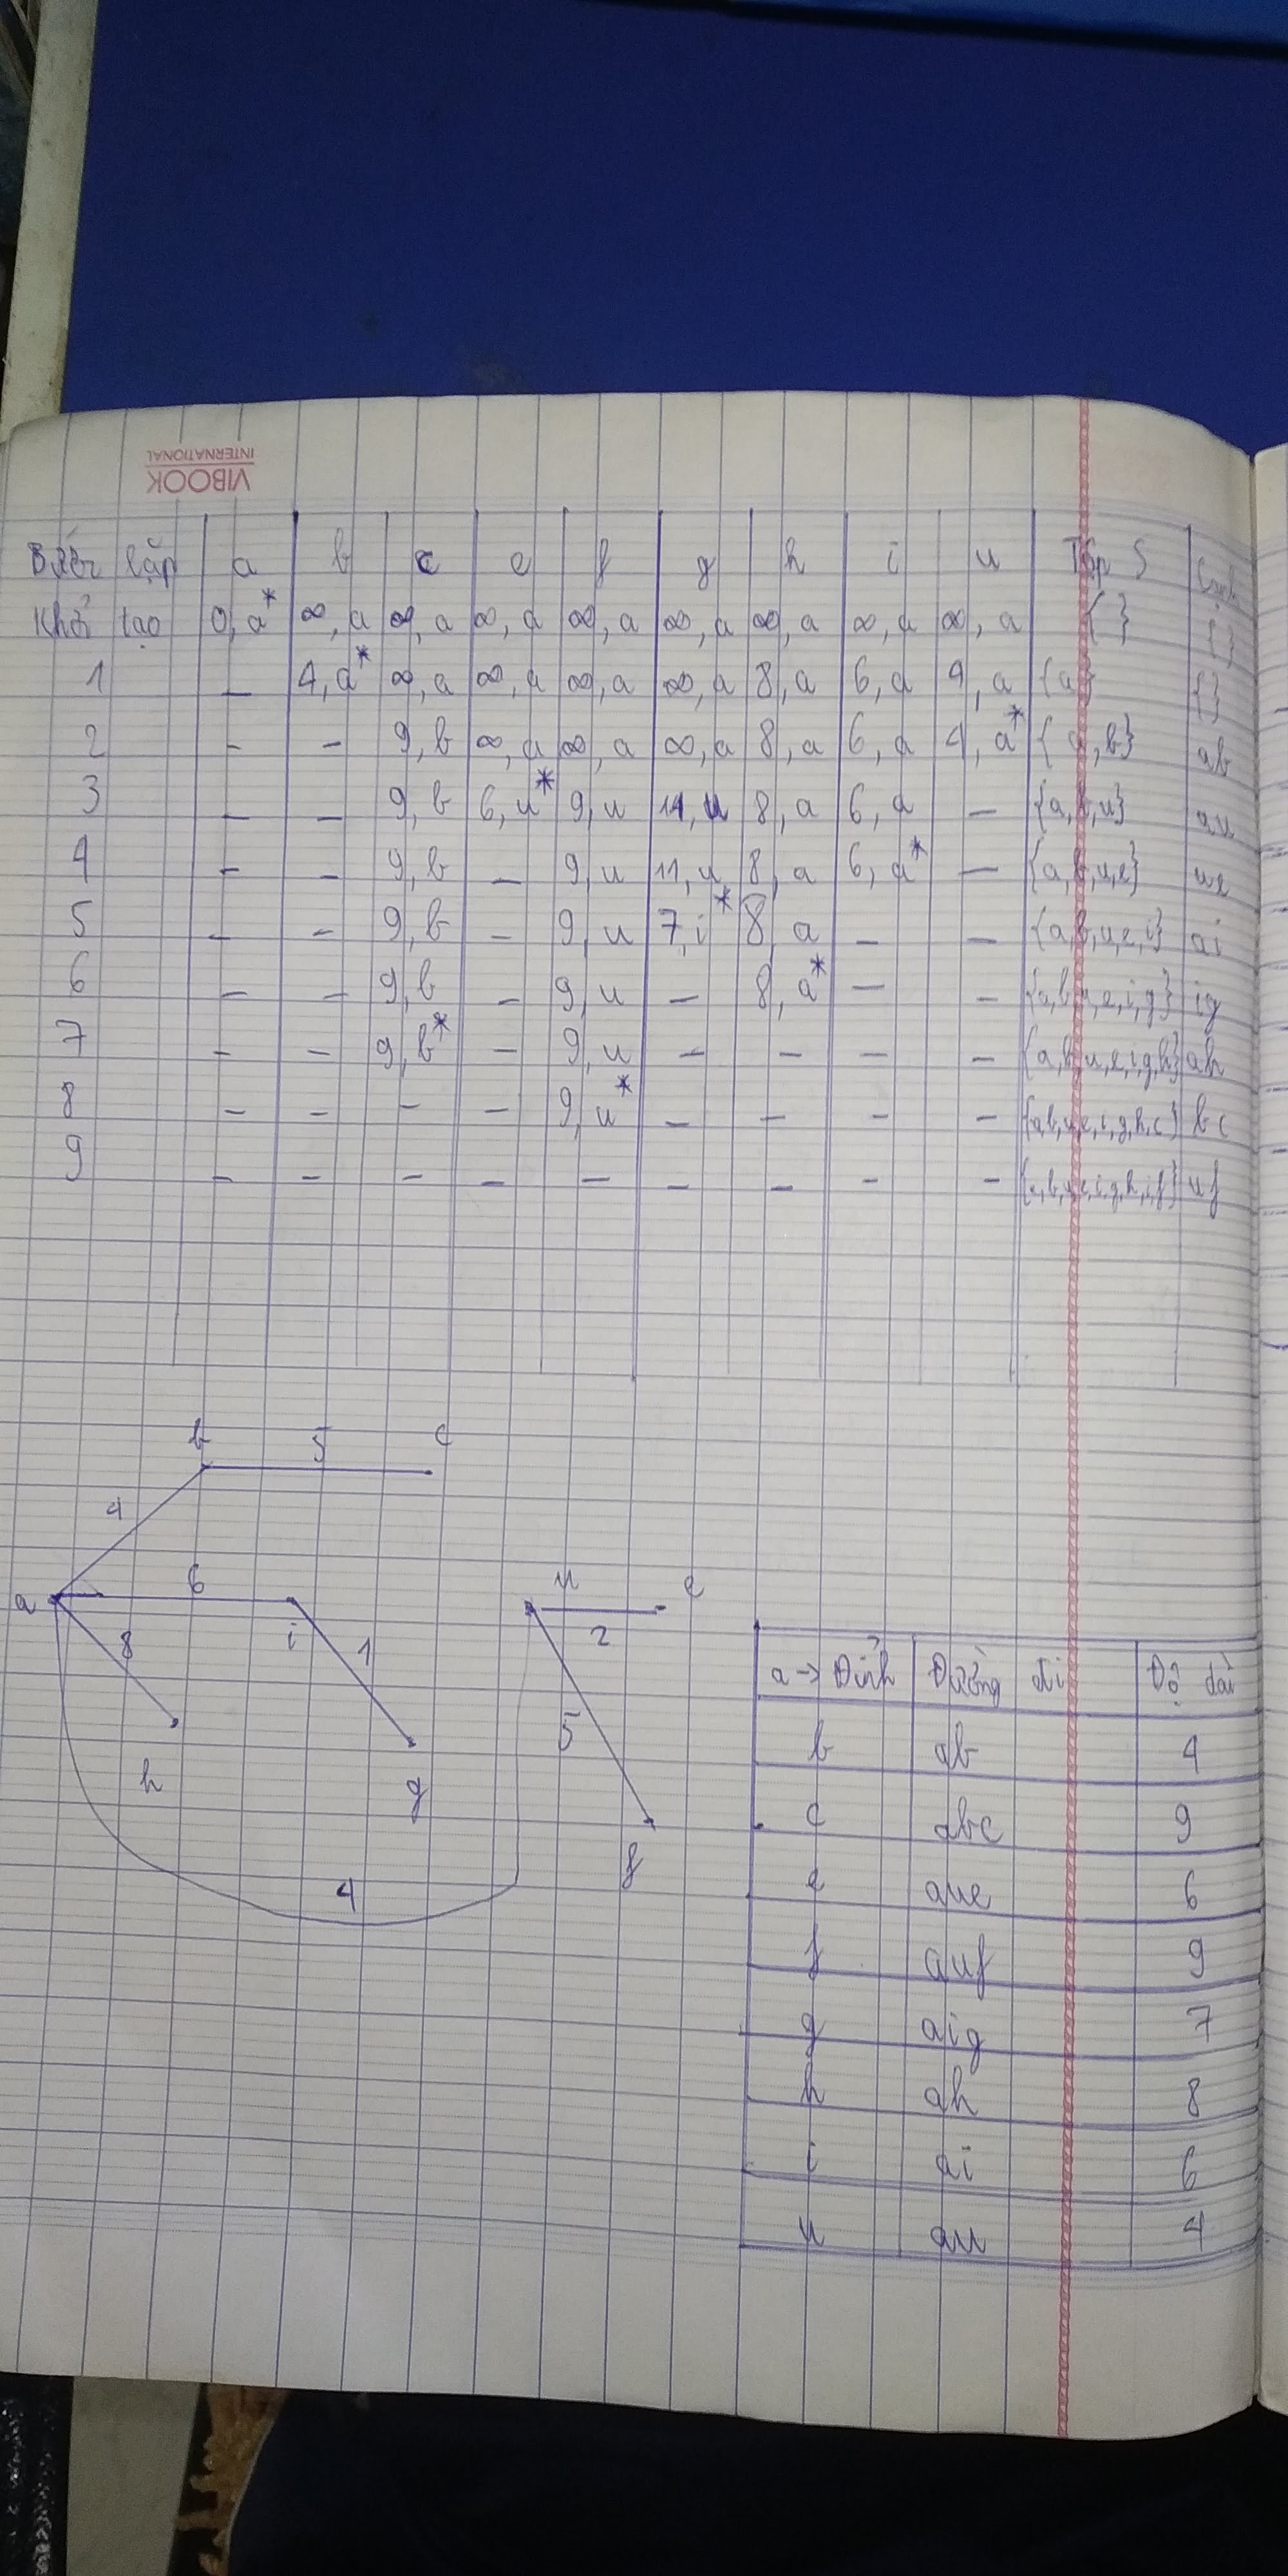 VIBOOK
INTERNATIONAL
Bước lặp a b c e f g h i u Tập S Cạnh
Khởi tạo 0,a* ∞,a ∞,a ∞,a ∞,a ∞,a ∞,a ∞,a ∞,a { } { }
1 – 4,a* ∞,a ∞,a ∞,a ∞,a 8,a 6,a 4,a {a} { }
2 – – 9,b ∞,a ∞,a ∞,a 8,a 6,a 4,a* {a,b} ab
3 – – 9,b 6,u* 9,u 11,u 8,a 6,a – {a,b,u} au
4 – – 9,b – 9,u 11,u 8,a 6,a* – {a,b,u,e} ue
5 – – 9,b – 9,u 7,i* 8,a – – {a,b,u,e,i} ai
6 – – 9,b – 9,u – 8,a* – – {a,b,u,e,i,g} ig
7 – – 9,b* – 9,u – – – – {a,b,u,e,i,g,h} ah
8 – – – – 9,u* – – – – {a,b,u,e,i,g,h,c} bc
9 – – – – – – – – – uf
b 5 c
4
a 6 i u e
8 1 2
h g 5
f
4
a → Đỉnh Đường đi Độ dài
b ab 4
c abc 9
e aue 6
f auf 9
g aig 7
h ah 8
i ai 6
u au 4